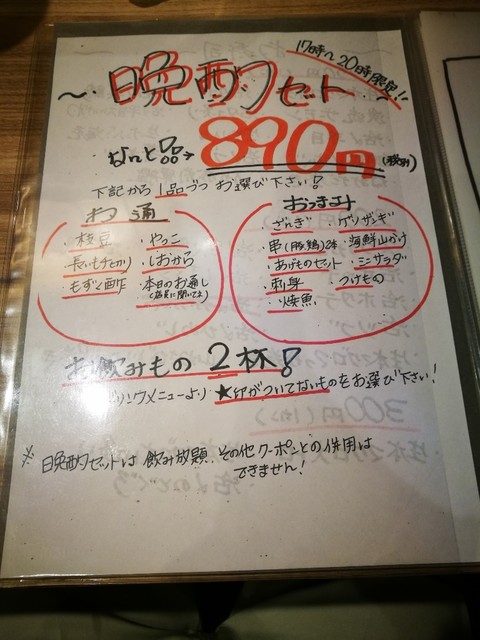 17時~20時限定!!
~・晩酌セット・~
なんと!!→890円(税別)
下記から1品づつお選び下さい!
お通
・枝豆 ・やっこ
・長いも千切り ・しおから
・もずく酢 ・本日のお通し
(店員に聞いてネ)
おつまみ
・ざんぎ ・ゲソザンギ
・串(豚、鶏)2本 ・海鮮山かけ
・あげものセット ・ミニサラダ
・刺身 ・つけもの
・焼魚
お飲みもの2杯!
ドリンクメニューより★印がついてないものをお選び下さい!
※晩酌セットは飲み放題、その他クーポンとの併用は
できません!
300円(1カン)